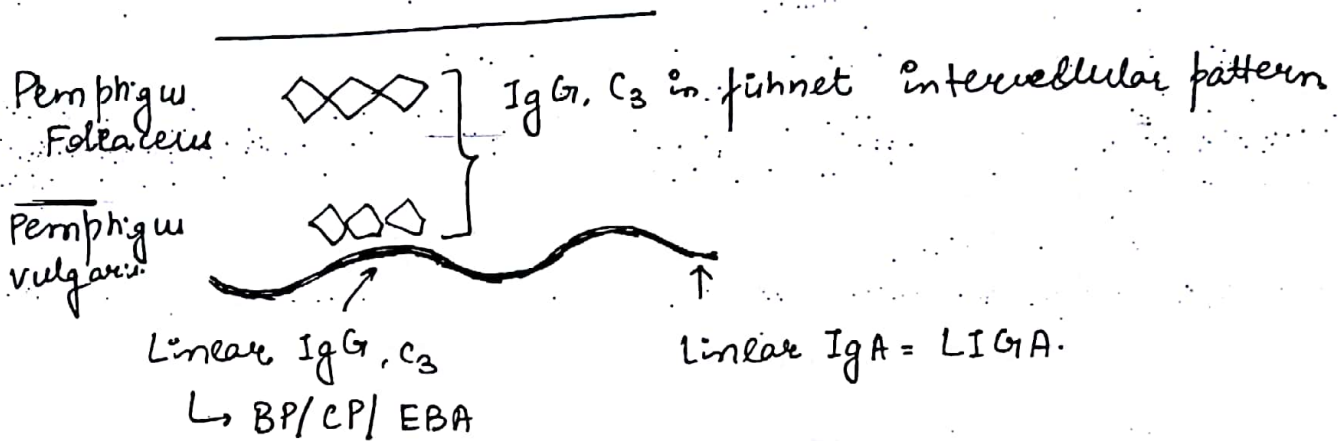 Pemphigus
Foliaceus
IgG, C3 in fishnet intercellular pattern
Pemphigus
vulgaris
Linear IgG, C3
↳ BP/CP/ EBA
Linear IgA = LIGA.